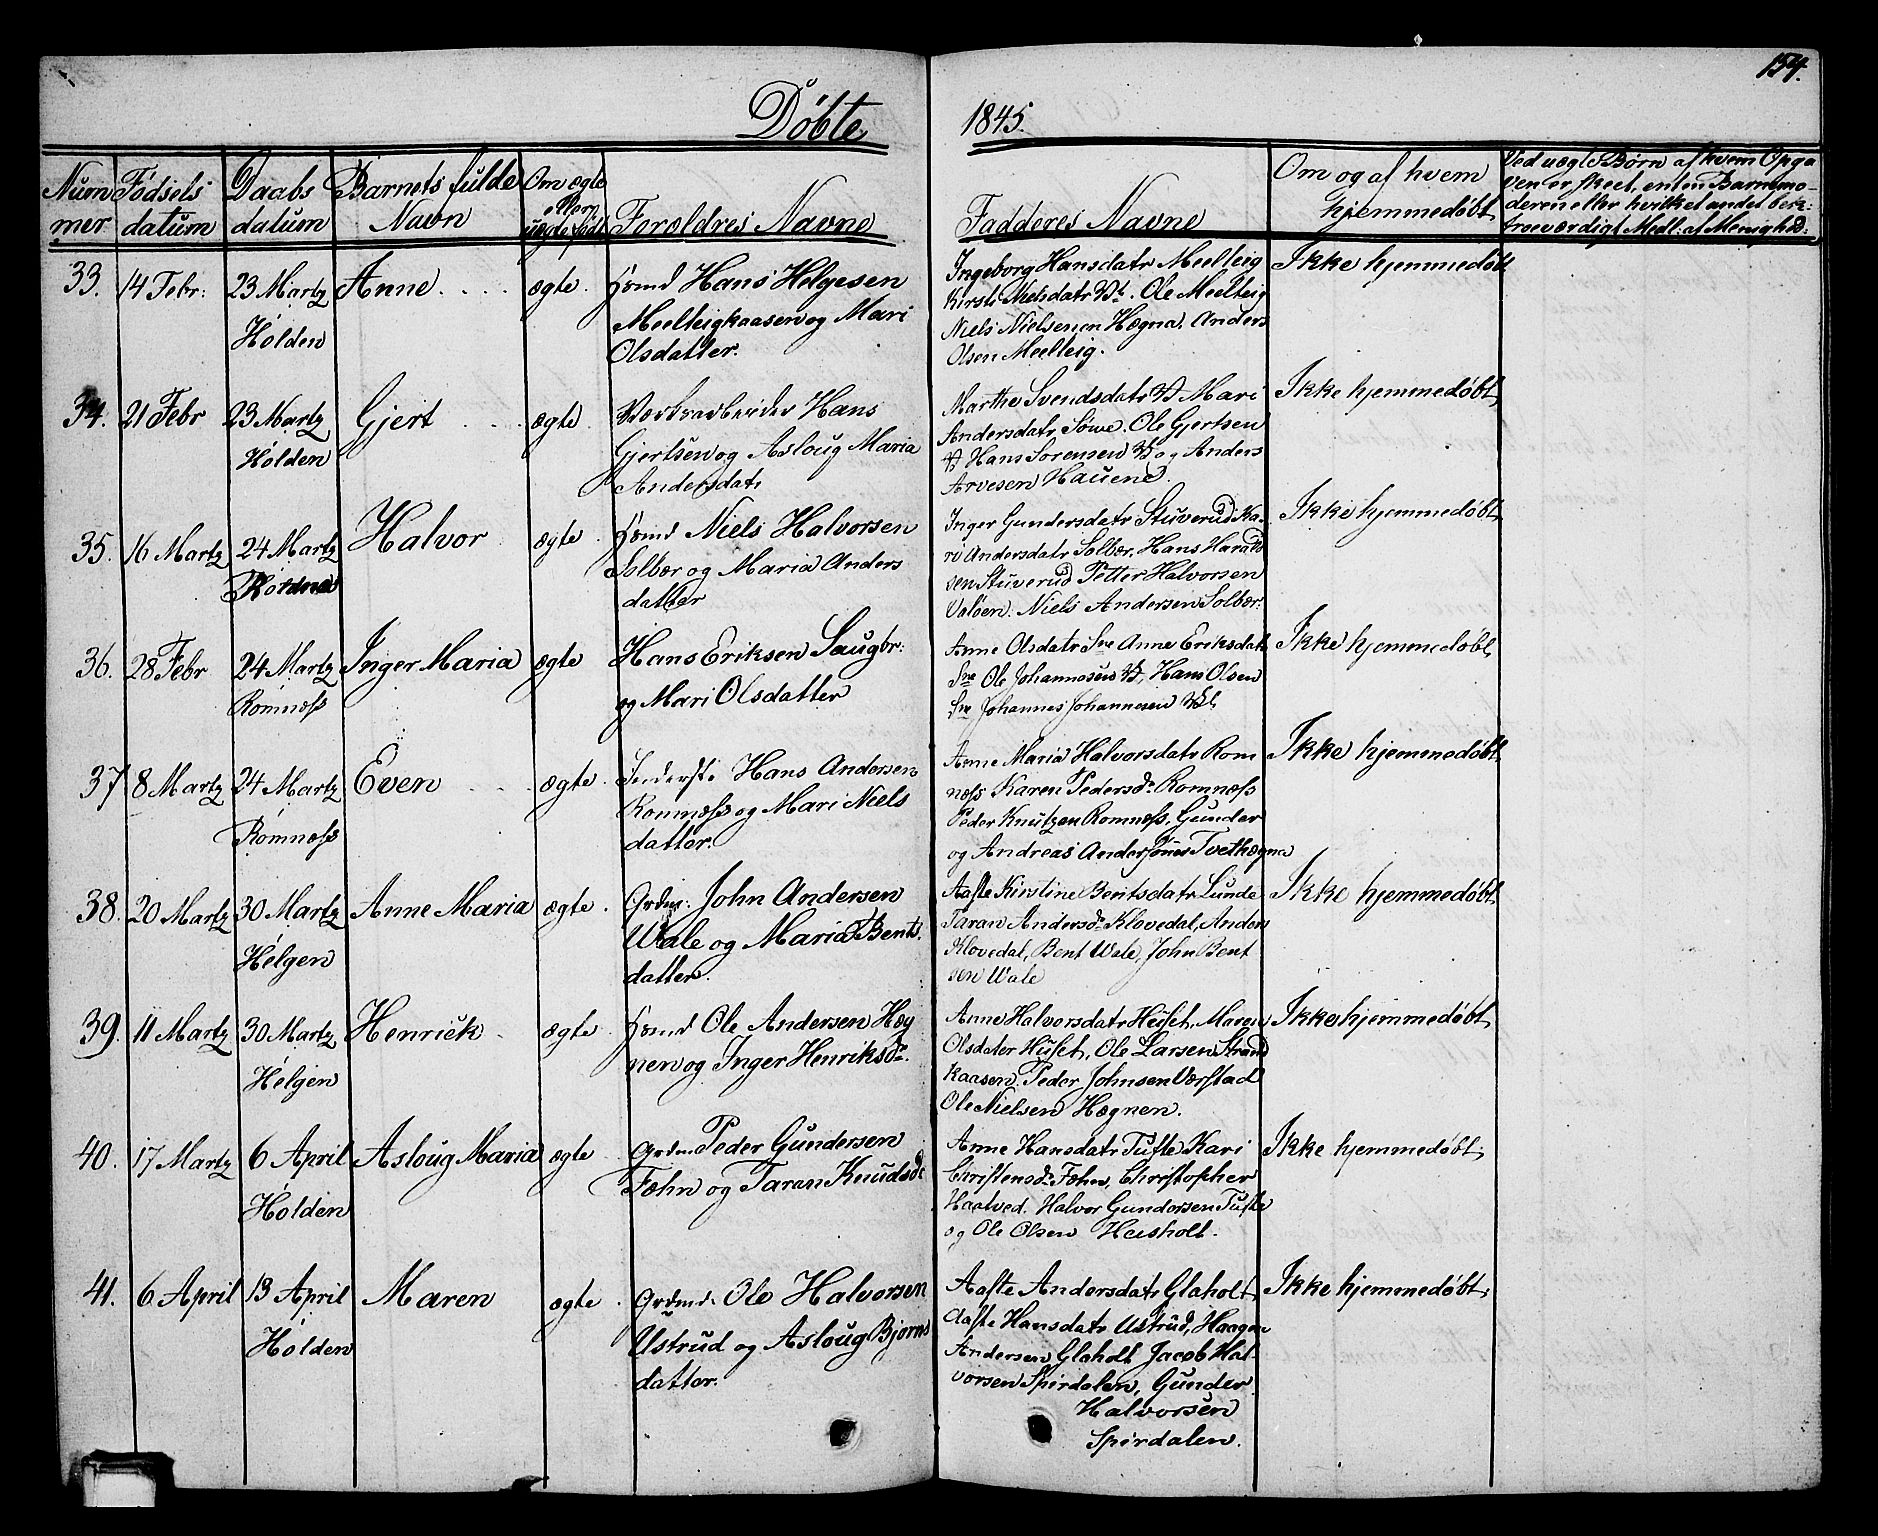 154.
Døbte 1845.
Num
mer
Fødsels
datum
Daabs
datum
Barnets fulde
Navn
Om ægte
eller
uægte født
Forældres Navne
Fadderes Navne
Om og af hvem
hjemmedøbt
Ved uægte Børn af hvem Opga
ven er skeet, enten Barnemo-
deren eller hvilket andet bek:
troeværdigt Medl: af Menighed:
33. 14 Febr: 23 Martz Anne . . . . ægte . Hsmd Hans Helgesen
Holden
Meelteigkaasen og Mari
Olsdatter.
Ingeborg Hansdatr Meelteig
Kirsti Nielsdatr Ole Meelteig
Niels Nielsen Hægna, Anders
Olsen Meelteig.
Ikke hjemmedøbt
34. 21 Febr 23 Martz Gjert . . . . ægte . Værksarbeider Hans
Holden
Gjertsen og Asloug Maria
Andersdatr
Marthe Svendsdatr Mari
Andersdatr Søwe. Ole Gjertsen
Hans Sørensen og Anders
Arvesen Hauene.
Ikke hjemmedøbt,
35. 16 Martz 24 Martz Halvor ægte . Hsmd Niels Halvorsen
Holden
Solbær og Maria Anders
datter
Inger Gundersdatr Stuverud Ka-
ri Andersdatr Solbær, Hans Harald
sen Stuverud Petter Halvorsen
Valøen. Niels Andersen Solbær.
Ikke hjemmedøbt,
36. 28 Febr 24 Martz Inger Maria ægte Hans Eriksen Saugbr:
Romnæss
og Mari Olsdatter
Anne Olsdatr Sve Anne Eriksdatr
Sve Ole Johannesen Hans Olsen
Sve Johannes Johannesen
Ikke hjemmedøbt,
37 8 Martz 24 Martz Even . . . ægte . Inderste Hans Andersen
Romnæss
Romnæss og Mari Niels
datter.
Anne Maria Halvorsdatr Rom
næss Karen Pedersdr Romnæss
Peder Knutzen Romnæss, Gunder
og Andreas Anderssønner Tvethægna
Ikke hjemmedøbt
38. 20 Martz 30 Martz Anne Maria ægte . Grdm: John Andersen
Helgen
Wale og Maria Bents
datter.
Aaste Kirstine Bentsdatr Lunde
Taran Andersdr Klovedal, Anders
Klovedal, Bent Wale, John Bent
sen Wale
Ikke hjemmedøbt,
39. 11 Martz 30 Martz Henrick . ægte . Hsmd Ole Andersen Hæg
Helgen
nen og Inger Henriksdr.
Anne Halvorsdatr Huset, Maren
Olsdater Huset, Ole Larsen Strand
kaasen. Peder Johnsen Værstad
Ole Nielsen Hægnen.
Ikke hjemmedøbt,
40. 17 Martz 6 April Asloug Maria ægte . Grdm Peder Gundersen
Holden
Fæhn og Taran Knudsdr
Anne Hansdatr Tufte Kari
Christensdr Fæhn, Christopher
Haatved. Halvor Gundersen Tufte
og Ole Olsen Heisholt.
Ikke hjemmedøbt,
41. 6 April 13 April Maren ægte . Grdmd. Ole Halvorsen
Holden
Ustrud og Asloug Bjorns
datter.
Aaste Andersdatr Glaholt,
Aaste Hansdatr Ustrud, Haagen
Andersen Glaholt Jacob Hal-
vorsen Spirdalen, Gunder
Halvorsen
Spirdalen.
Ikke hjemmedøbt,